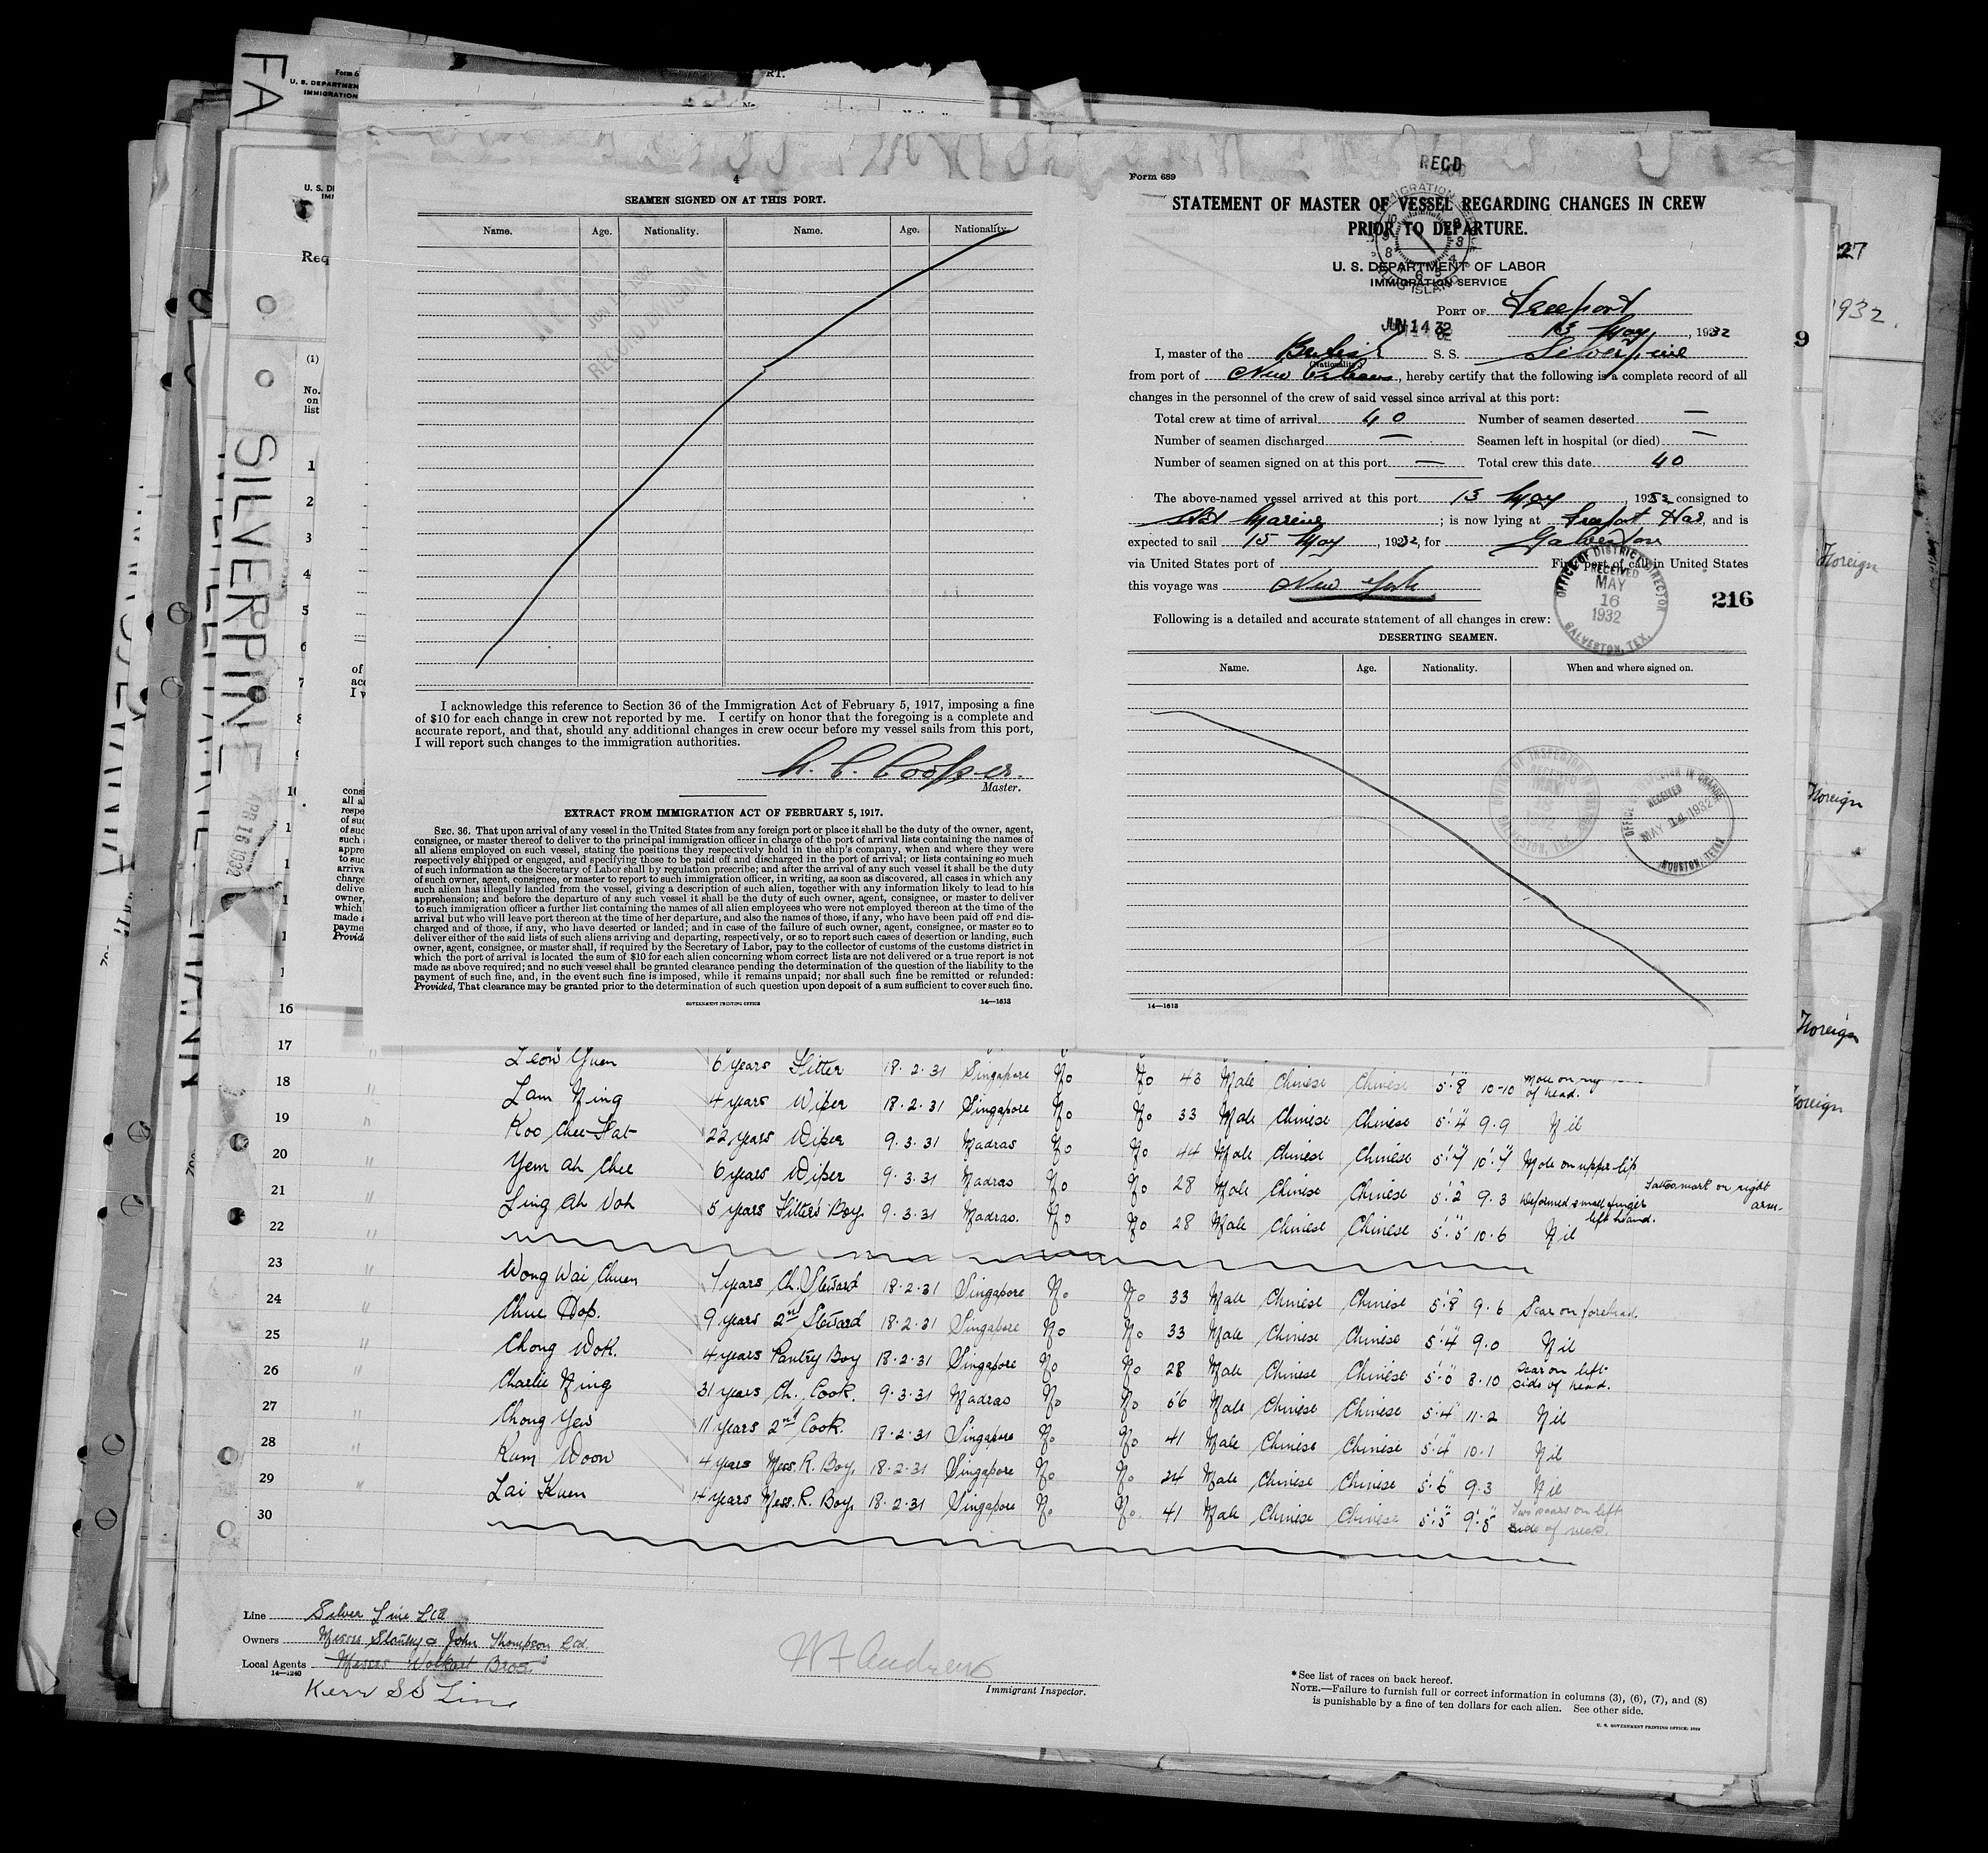 FA
Form 6
U. S. DEPARTMEN
IMMIGRATION
RT.
U. S. D
IM
Req
(1)
No.
on
list
SILVERPINE
APR 16 1932
27
1932.
9
Foreign
Foreign
Foreign
Foreign
4
SEAMEN SIGNED ON AT THIS PORT.
Name. Age. Nationality. Name. Age. Nationality.
RECORD DIVISION
I acknowledge this reference to Section 36 of the Immigration Act of February 5, 1917, imposing a fine
of $10 for each change in crew not reported by me. I certify on honor that the foregoing is a complete and
accurate report, and that, should any additional changes in crew occur before my vessel sails from this port,
I will report such changes to the immigration authorities.
Cooper.
Master.
EXTRACT FROM IMMIGRATION ACT OF FEBRUARY 5, 1917.
SEC. 36. That upon arrival of any vessel in the United States from any foreign port or place it shall be the duty of the owner, agent,
consignee, or master thereof to deliver to the principal immigration officer in charge of the port of arrival lists containing the names of
all aliens employed on such vessel, stating the positions they respectively hold in the ship's company, when and where they were
respectively shipped or engaged, and specifying those to be paid off and discharged in the port of arrival; or lists containing so much
of such information as the Secretary of Labor shall by regulation prescribe; and after the arrival of any such vessel it shall be the duty
of such owner, agent, consignee, or master to report to such immigration officer, in writing, as soon as discovered, all cases in which any
such alien has illegally landed from the vessel, giving a description of such alien, together with any information likely to lead to his
apprehension; and before the departure of any such vessel it shall be the duty of such owner, agent, consignee, or master to deliver
to such immigration officer a further list containing the names of all alien employees who were not employed thereon at the time of the
arrival but who will leave port thereon at the time of her departure, and also the names of those, if any, who have been paid off and dis-
charged and of those, if any, who have deserted or landed; and in case of the failure of such owner, agent, consignee, or master so to
deliver either of the said lists of such aliens arriving and departing, respectively, or so to report such cases of desertion or landing, such
owner, agent, consignee, or master shall, if required by the Secretary of Labor, pay to the collector of customs of the customs district in
which the port of arrival is located the sum of $10 for each alien concerning whom correct lists are not delivered or a true report is not
made as above required; and no such vessel shall be granted clearance pending the determination of the question of the liability to the
payment of such fine, and, in the event such fine is imposed, while it remains unpaid; nor shall such fine be remitted or refunded:
Provided, That clearance may be granted prior to the determination of such question upon deposit of a sum sufficient to cover such fine.
GOVERNMENT PRINTING OFFICE 14—1613
RECD
Form 689
STATEMENT OF MASTER OF VESSEL REGARDING CHANGES IN CREW
PRIOR TO DEPARTURE.
U. S. DEPARTMENT OF LABOR
IMMIGRATION SERVICE
PORT OF Freeport
JUN 14 32
13 May, 1932
I, master of the British S. S. Silverpine
(Nationality)
from port of New Orleans, hereby certify that the following is a complete record of all
changes in the personnel of the crew of said vessel since arrival at this port:
Total crew at time of arrival 40 Number of seamen deserted —
Number of seamen discharged — Seamen left in hospital (or died) —
Number of seamen signed on at this port — Total crew this date 40
The above-named vessel arrived at this port 13 May, 1932 consigned to
; is now lying at Freeport, and is
expected to sail 15 May, 1932, for Galveston
via United States port of First port of call in United States
this voyage was New York
OFFICE OF DISTRICT DIRECTOR
RECEIVED
MAY
16
1932
GALVESTON, TEX.
216
Following is a detailed and accurate statement of all changes in crew:
DESERTING SEAMEN.
Name. Age. Nationality. When and where signed on.
RECEIVED
MAY 14 1932
HOUSTON, TEXAS
14—1613
16
17 " Leon Yuen 6 years Fitter 18.2.31 Singapore No No 43 Male Chinese Chinese 5'.8" 10-10 of head.
18 " Lam Ning 4 years Wiper 18.2.31 Singapore No No 33 Male Chinese Chinese 5'.4" 9.9 Nil
19 " Koo Chee Fat 22 years Wiper 9.3.31 Madras No No 44 Male Chinese Chinese 5'.7" 10.7 Mole on upper lip
20 " Yem Ah Chee 6 years Wiper 9.3.31 Madras No No 28 Male Chinese Chinese 5'.2" 9.3 Deformed small finger left hand. Tattoo mark on right arm.
21 " Ling Ah Voh 5 years Fitter's Boy. 9.3.31 Madras. No No 28 Male Chinese Chinese 5'.5" 10.6 Nil
22 "
23 " Wong Wai Chuen 7 years Ch. Steward 18.2.31 Singapore No No 33 Male Chinese Chinese 5'.8" 9.6 Scar on forehead.
24 " Chue Hop. 9 years 2nd Steward 18.2.31 Singapore No No 33 Male Chinese Chinese 5'.4" 9.0 Nil
25 " Chong Wok. 4 years Pantry Boy 18.2.31 Singapore No No 28 Male Chinese Chinese 5'.0" 8.10 Scar on left side of head.
26 " Charlie Ning 31 years Ch. Cook. 9.3.31 Madras No No 56 Male Chinese Chinese 5'.4" 11.2 Nil
27 " Chong Yew 11 years 2nd Cook. 18.2.31 Singapore No No 41 Male Chinese Chinese 5'.4" 10.1 Nil
28 " Kum Woon 4 years Mess. R. Boy. 18.2.31 Singapore No No 24 Male Chinese Chinese 5'.6" 9.3 Nil
29 Lai Kuen 14 years Mess. R. Boy. 18.2.31 Singapore No No. 41 Male Chinese Chinese 5'.5" 9.8 Two scars on left side of neck.
30
Line Silver Line Ltd
Owners Messrs Stanley & John Thompson Ltd.
Local Agents Messrs Volkart Bros.
14—1240
Kerr S S Line
W F Andrews
Immigrant Inspector.
*See list of races on back hereof.
NOTE.—Failure to furnish full or correct information in columns (3), (6), (7), and (8)
is punishable by a fine of ten dollars for each alien. See other side.
U. S. GOVERNMENT PRINTING OFFICE: 1929